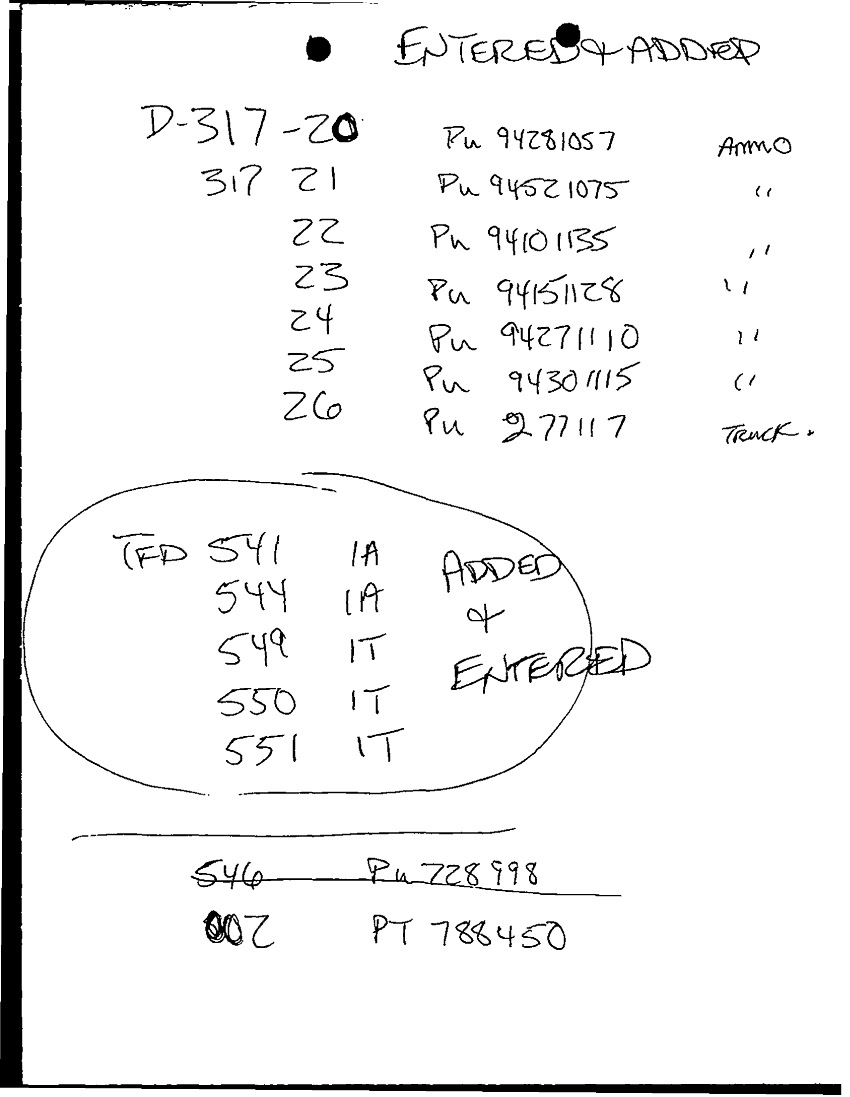 ENTERED & ADDED
D-317-20 Pu 94281057 AMMO
317 21 Pu 94521075 "
22 Pu 94101135 "
23 Pu 94151128 "
24 Pu 94271110 "
25 Pu 94301115 "
26 Pu 277117 TRUCK.
TFD 541 1A ADDED
544 1A &
549 1T ENTERED
550 1T
551 1T
546 Pu 728998
002 PT 788450